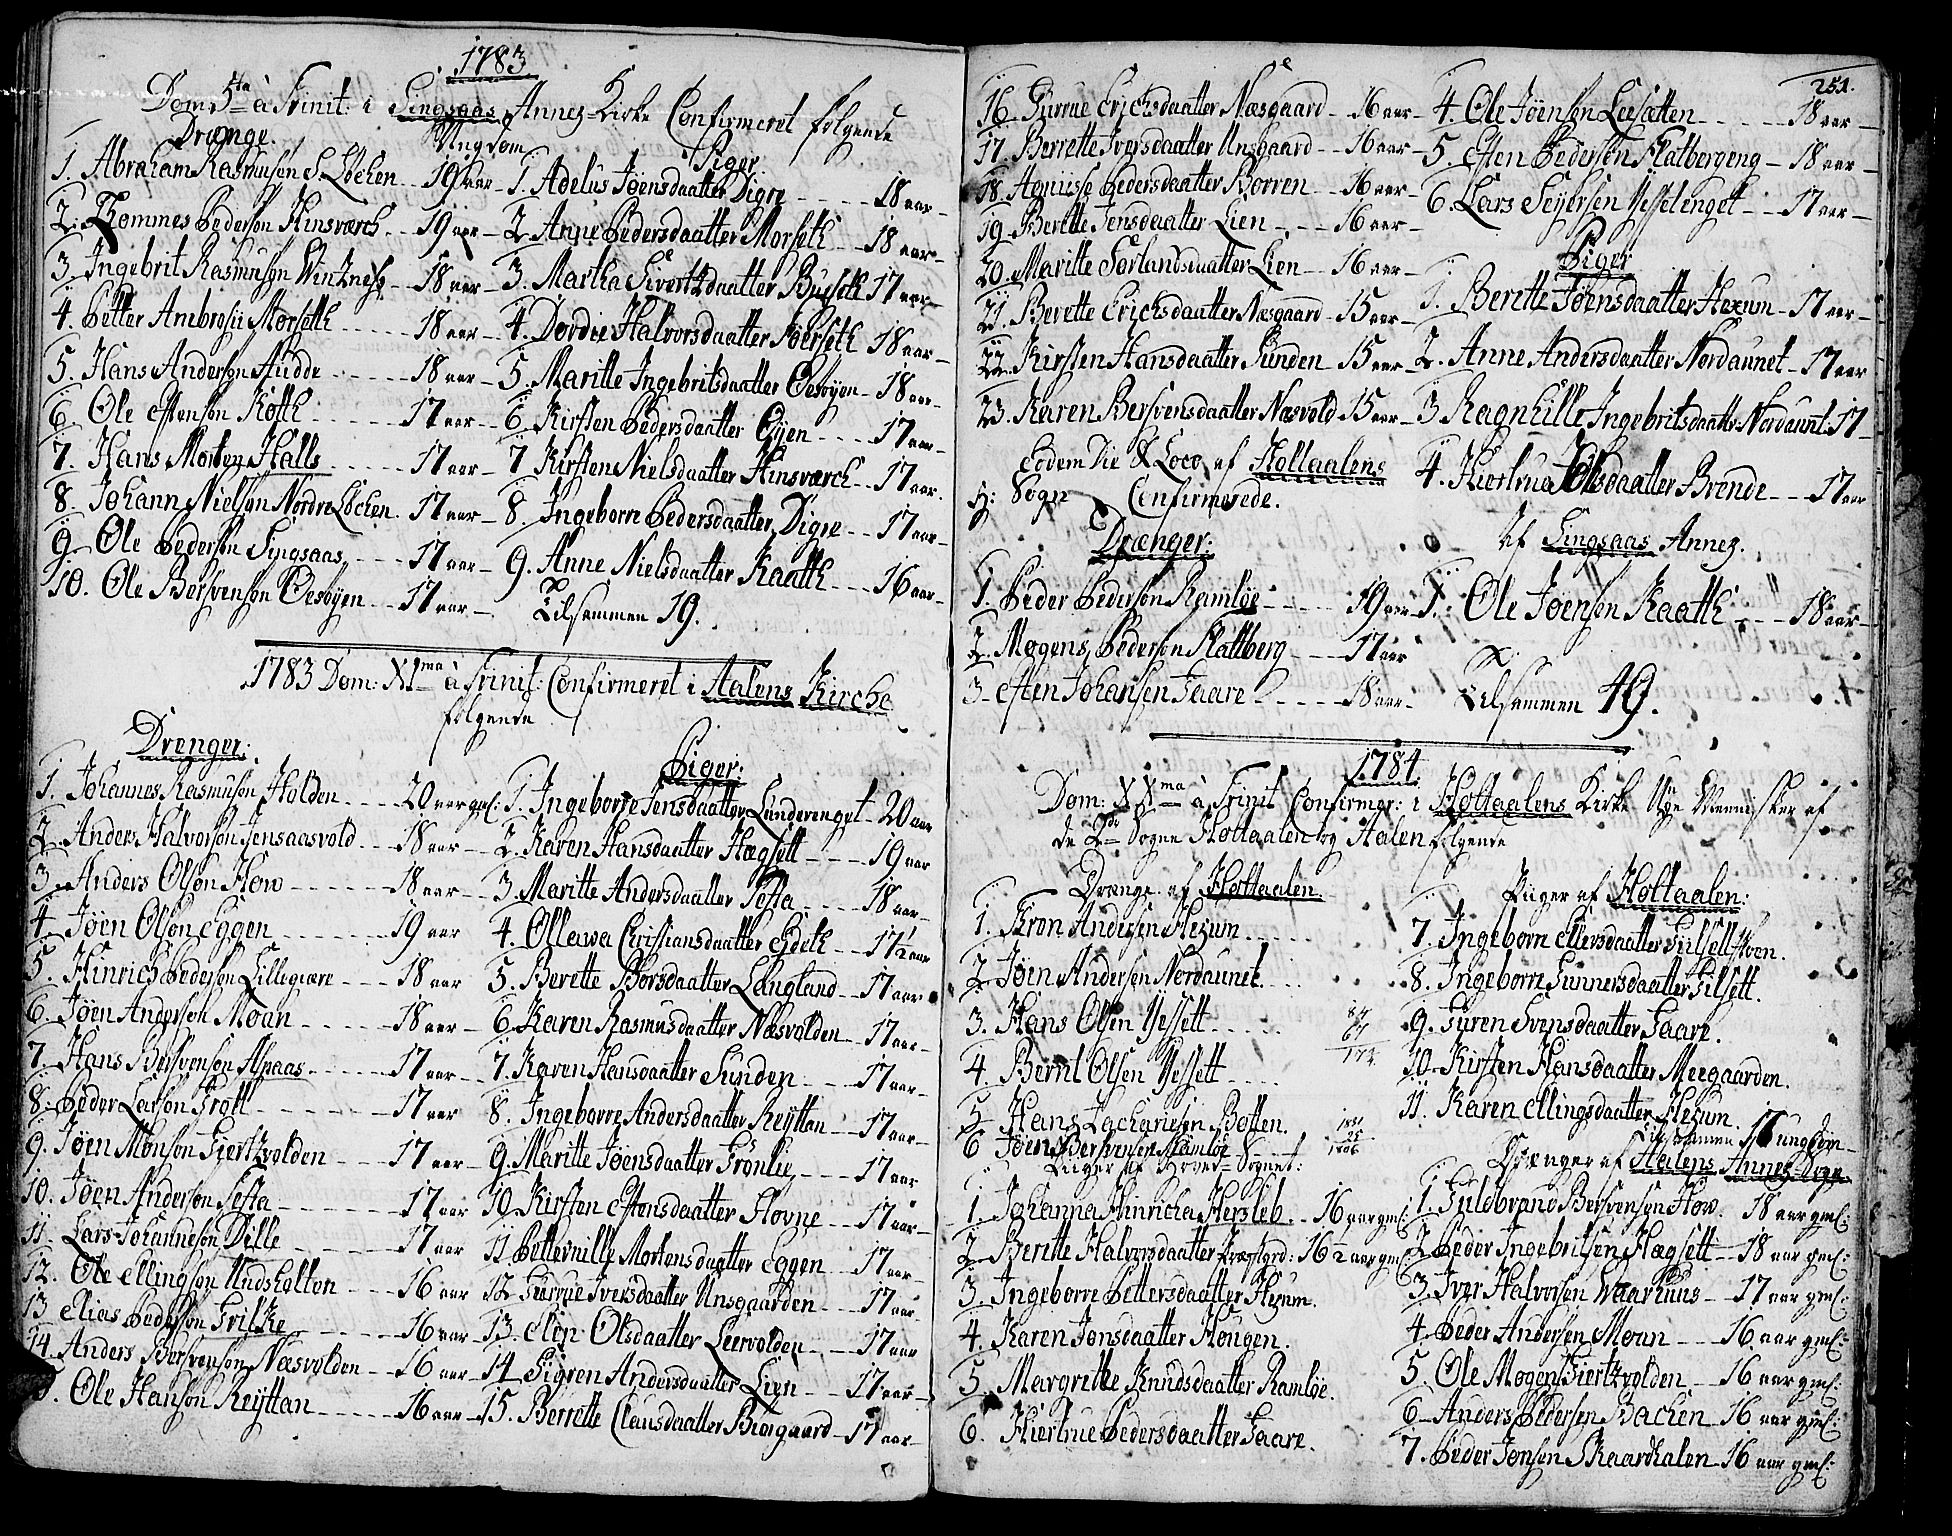 1783
Dom 5ta à Trinit: i Singsaas Annex-Kirke Confirmeret følgende
Ungdom
Drænge.
1. Abraham Rasmusøn S. Løchen 19 aar
2. Thommes Pedersøn Hinsværch 19 aar
3. Ingebrit Rasmusøn Wintznes 18 aar
4. Petter Ambrosii Morseth 18 aar
5. Hans Andersøn Hudde 18 aar
6. Ole Estensøn Kotth 17 aar
7. Hans Morten Halls 17 aar
8. Johann Nielsøn Nordre Løchen 17 aar
9. Ole Pedersøn Singsaas 17 aar
10. Ole Bersvensøn Oesøyen 17 aar
Piger
1. Adelus Jøensdaatter Digre 18 aar
2. Anne Pedersdaatter Morseth 18 aar
3. Martha Sivertzdaatter Busett 17 aar
4. Dordie Halvorsdaatter Foerseth 18 aar
5. Maritte Ingebritsdaatter Oesøyen 18 aar
6. Kirsten Pedersdaatter Øyen 17 aar
7. Kirsten Nielsdaatter Hinsværch 17 aar
8. Ingeborre Pedersdaatter Digre 17 aar
9. Anne Nielsdaatter Kaatth 16 aar
Tilsammen 19.
1783 Dom: XIma à Trinit: Confirmeret i Aalens Kirche
følgende
Drenger:
1. Johannes Rasmusøn Holden 20 aar gml:
2. Anders Halvorsøn Jensaasvold 18 aar
3. Anders Olsøn How 18 aar
4. Jøen Olsøn Eggen 19 aar
5. Hinrich Pedersøn Lillegiære 18 aar
6. Jøen Andersøn Moan 18 aar
7. Hans Bersvensøn Aspaas 17 aar
8. Peder Larsøn Grøtt 17 aar
9. Jøen Monsøn Giertzvolden 17 aar
10. Jøen Andersøn Tefta 17 aar
11. Lars Johannesøn Dille 17 aar
12. Ole Ellingsøn Undshollon 16 aar
13 Elias Pedersøn Grilke 16 aar
14. Anders Bersvensøn Næsvolden 16 aar
Ole Hansøn Reyttan 16 aar
Piger:
1. Ingeborre Jensdaatter Lunderenget 20 aar
2. Karen Hansdaatter Hægsett 19 aar
3. Maritte Andersdaatter Tefta 18 aar
4. Ollawa Christiansdaatter Eideth 17 1/2 aar
5. Berette Borsdaatter Langland 17 aar
6. Karen Rasmusdaatter Næsvolden 17 aar
7. Karen Hansdaatter Sunden 17 aar
8. Ingeborre Andersdaatter Reyttan 17 aar
9. Maritte Jøensdaatter Grønlie 17 aar
10 Kirsten Estensdaatter Hovne 17 aar
11 Petternille Mortensdaatter Eggen 17 aar
12 Gurrue Iversdaatter Unsgaarden 17 aar
13. Elen Olsdaatter Leervolden 17 aar
14 Sigren Andersdaatter Lien 17 aar
15. Berrette Clausdaatter Biørgaard 17 aar
251.
16 Gurrue Erichsdaatter Næsgaard 16 aar
17. Berrette Iversdaatter Unsgaard 16 aar
18. Agnisse Pedersdaatter Borren 16 aar
19. Berette Jensdaatter Lien 16 aar
20. Maritte Torlandsdaatter Lien 16 aar
21. Berette Erichsdaatter Næsgaard 15 aar
22. Kirsten Hansdaatter Sunden 15 aar
23. Karen Bersvensdaatter Næsvold 15 aar
Eodem Die & Loco af Holtaalens
H: Sogn Confirmerede.
Drænger:
1. Peder Pedersøn Ramløe 19 aar
2. Mogens Pedersøn Flattberg 17 aar
3. Esten Johansen Gaare 18 aar
4. Ole Jøensøn Leesetten 18 aar
5. Esten Pedersøn Flatbergeng 18 aar
6. Lars Seyersøn Hesselenget 17 aar
Piger
1. Berette Jøensdaatter Hexum 17 aar
2. Anne Andersdaatter Nordaunet 17 aar
3 Ragnhille Ingebritsdaatter Nordaunt: 17
4. Hiertrue Jolsdaatter Brende 17 aar
Af Singsaas Annex.
1. Ole Jøensøn Kaatth 18 aar
Tilsammen 49.
1784
Dom: XXma à Trinit Confirmer: i Holtaalens Kirke Uge Mennisker af
de 2de Sogne Holtaalen og Aalen følgende
Drænge af Holtaalen
1. Kron Andersen Hexum
2. Jøen Andersen Nordaunet
3. Hans Olsen Hessett
4. Bernt Olsen Hessett
5 Hans Zachariesen Botten.
6 Jøen Bersvensen Ramløe
Piiger af Hoved-Sognet:
1. Johanna Hinricha Hersleb 16 aar gml:
2. Berette Halvorsdaatter Præstgrd: 16 1/2 aar gml:
3. Ingeborre Pettersdaatter Hexum.
4. Karen Jonsdaatter Hougen.
5. Margrette Knudsdaatter Ramløe.
6. Hiertrue Pedersdaatter Gaare.
87
87
174
Piiger af Holtaalen:
7. Ingeborre Ellersdaatter Gulsettmoen.
8. Ingeborre Gunnersdaatter Gilsett.
9. Guren Svensdaatter Gaare.
10. Kirsten Hansdaatter Meegaarden.
11. Karen Ellingsdaatter Hexum.
Tilsammen 17 ungdom
Drænger af Aalens Annex-Sogn
1. Guldbrand Bersvensen How. 18 aar gml:
2. Peder Ingebritsen Hægsett 18 aar gml:
3. Iver Halvorsen Waarhuus 17 aar gml:
4. Peder Andersen Moan 16 aar gml:
5. Ole Mogen Giertzvolden 16 aar gml:
6 Anders Pedersen Bachen 16 aar gml:
7. Peder Jonsen Skaardalen 16 aar gml: